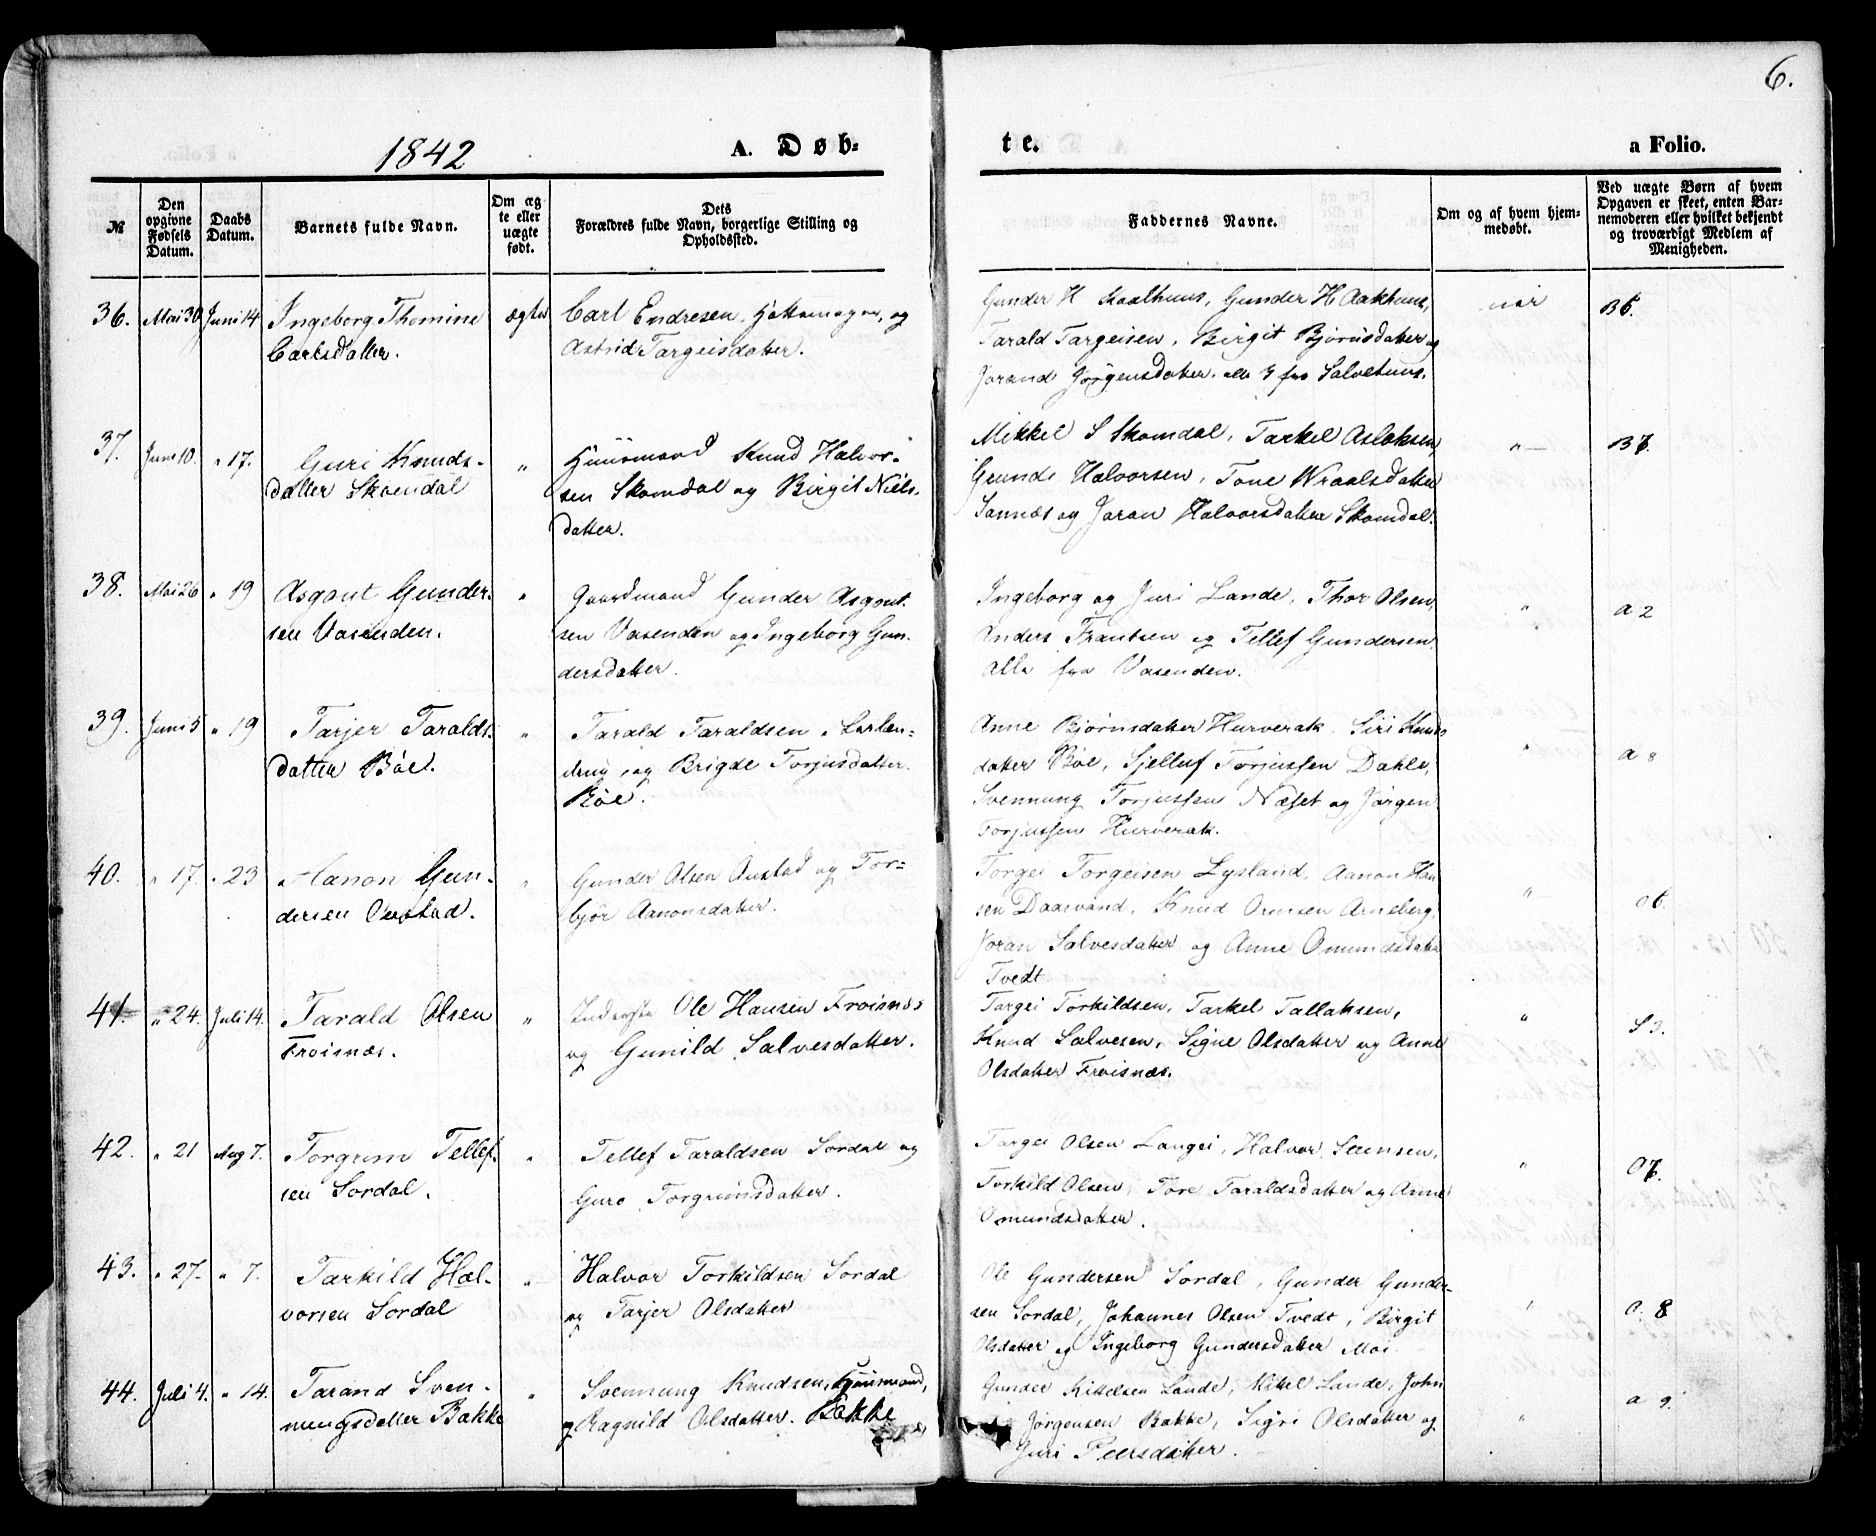 6.
1842
A. Døb-
te.
a Folio.
№
Den opgivne Fødsels Datum.
Daabs Datum.
Barnets fulde Navn.
Om ægte eller uægte født.
Dets Forældres fulde Navn, borgerlige Stilling og Opholdssted.
Faddernes Navne.
Om og af hvem hjemmedøbt.
Ved uægte Børn af hvem Opgaven er skeet, enten Barnemoderen eller hvilket bekjendt og troværdigt Medlem af Menigheden.
36. Mai 30 Juni 14 Ingeborg Thomine
Carlsdatter.
ægte
Carl Endresen, og
Astrid Targeisdatter.
Gunder H Gunder H Aakhuus,
Tarald Targeisen, Birgit Bjørnsdatter og
Jorand Jørgensdatter, alle fra
B 6.
37. Juni 10. " 17. Guri Knuds-
datter Skomdal
"
Huusmand Knud Halvor-
sen Skomdal og Birgit Niels-
datter.
Mikkel S Skomdal, Tarkel Aslaksen,
Gunde Halvorsen, Tone Wraalsdatter
Sannæs og Joran Halvorsdatter Skomdal.
"
B 7.
38. Mai 26 " 19 Asgout Gunder-
sen Vasenden.
"
Gaardmand Gunder Asgout-
sen Vasenden og Ingeborg Gun-
dersdatter.
Ingeborg og Juri Lande, Thor Olsen,
Anders Frantsen og Tellef Gundersen
Alle fra Vasenden.
"
a 2
39. Juni 5 " 19 Tarjer Taralds-
datter Bøe.
"
Tarald Taraldsen
og Brigde Torjusdatter
Bøe.
Anne Bjørnsdatter Hurverak, Siri Knuds
datter Bøe, Sjelluf Torjussen Dahle,
Svennung Torjussen Næset og Jørgen
Torjussen Hurverak.
"
a 8
40. " 17. " 23 Aanon Gun-
dersen Austad.
"
Gunder Olsen Austad og Tor-
bjør Aanonsdatter.
Torgei Torgeisen Lysland, Aanon Han
sen Daasvand, Knud Ormsen Arneberg,
Joran Salvesdatter og Anne Omundsdatter
Tvedt
"
o 6.
41. " 24. Juli 14. Tarald Olsen
Froisnæs.
"
Inderste Ole Hansen Froisnæs
og Gunild Salvesdatter.
Targei Torkildsen, Tarkel Tallaksen,
Knud Salvesen, Signe Olsdatter og Anne
Olsdatter Froisnæs.
"
S 3.
42. " 21 Aug 7. Torgrim Tellef-
sen Sordal.
"
Tellef Taraldsen Sordal og
Guro Torgrimsdatter.
Targei Olsen Langei, Halvor
Torkild Olsen, Tore Taraldsdatter og Anne
Omundsdatter.
"
O 7.
43. " 27. " 7. Tarkild Hal-
vorsen Sordal
"
Halvor Torkildsen Sordal
og Tarjer Olsdatter
Ole Gundersen Sordal, Gunder Gunder-
sen Sordal, Johannes Olsen Tvedt, Birgit
Olsdatter og Ingeborg Gundersdatter Moi
"
O. 8
44. Juli 4. " 14. Tarand Sven-
nungsdatter Bakke
"
Svennung Knudsen, Huusmand,
og Ragnild Olsdatter. Bakke
Gunder Kittelsen Lande, Kittel Lande, John
Jørgensen Bakke, Sigri Olsdatter og
Juri Peersdatter.
"
a 9.